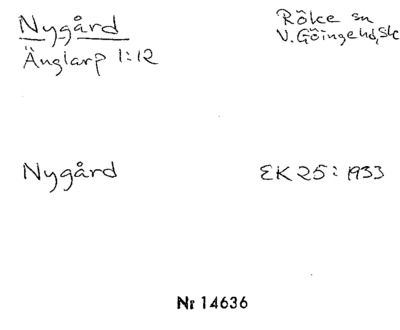 Nygård
Änglarp 1:12
Röke sn
V. Göinge hd, Sk
Nygård
EK 25: 1933
Nr 14636